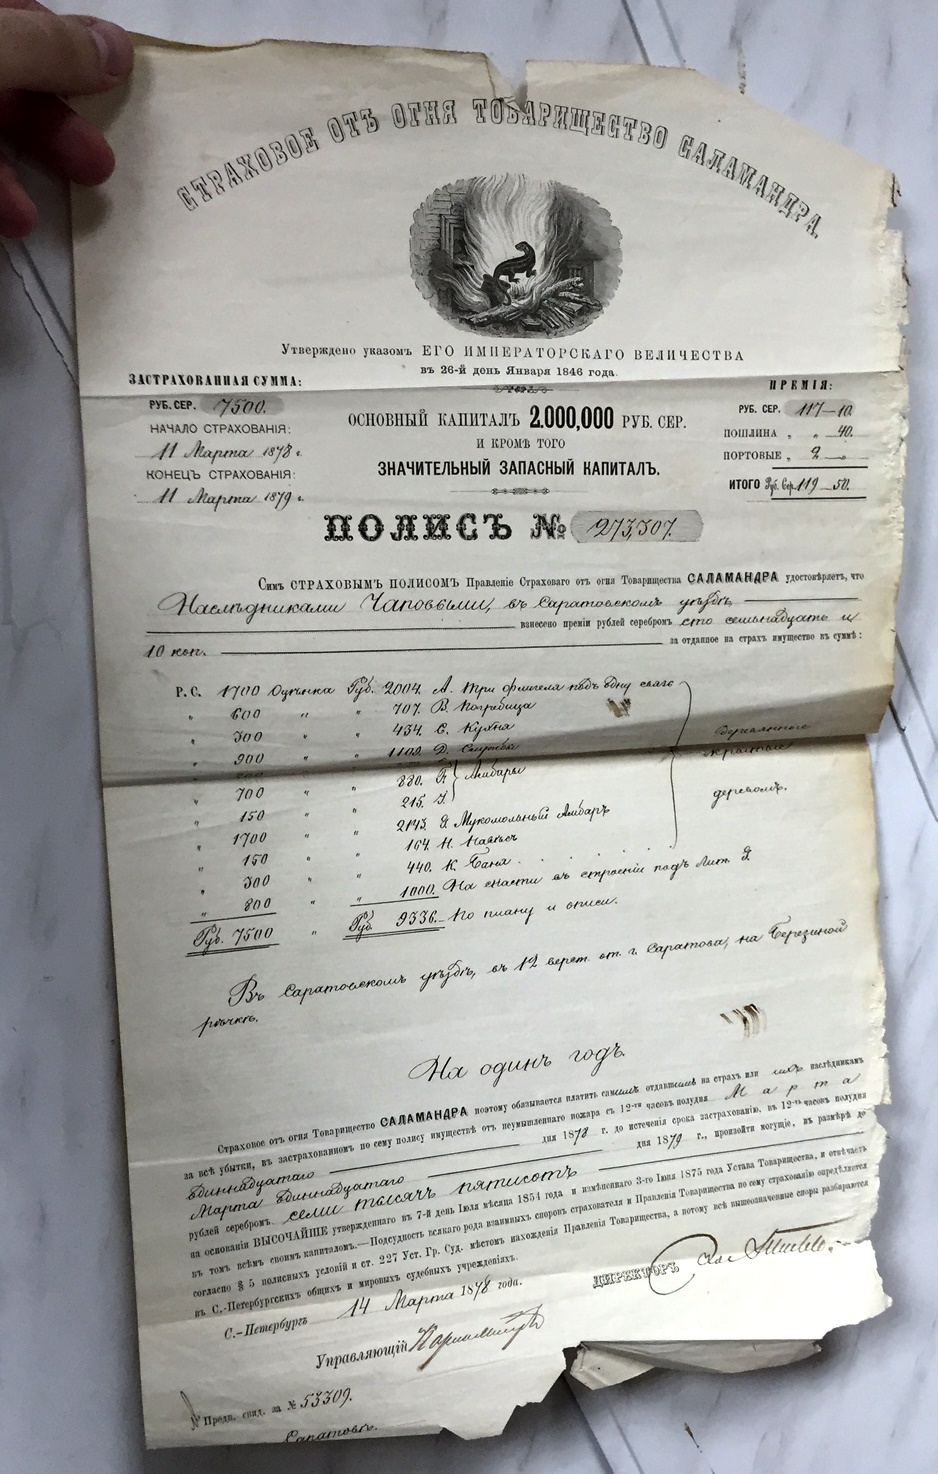 СТРАХОВОЕ ОТЪ ОГНЯ ТОВАРИЩЕСТВО САЛАМАНДРА.
Утверждено указомъ ЕГО ИМПЕРАТОРСКАГО ВЕЛИЧЕСТВА
въ 26-й день Января 1846 года.
ЗАСТРАХОВАННАЯ СУММА:
РУБ. СЕР. 7500.
НАЧАЛО СТРАХОВАНІЯ:
11 Марта 1878 г.
КОНЕЦЪ СТРАХОВАНІЯ:
11 Марта 1879 г.
ОСНОВНЫЙ КАПИТАЛЪ 2.000,000 РУБ. СЕР.
И КРОМѢ ТОГО
ЗНАЧИТЕЛЬНЫЙ ЗАПАСНЫЙ КАПИТАЛЪ.
ПРЕМІЯ:
РУБ. СЕР. 117-10.
ПОШЛИНА „ „ 40.
ПОРТОВЫЕ „ 2 —
ИТОГО Руб. Сер. 119-50.
ПОЛИСЪ № 273,307.
Симъ СТРАХОВЫМЪ ПОЛИСОМЪ Правленіе Страховаго отъ огня Товарищества САЛАМАНДРА удостовѣряетъ, что
Наслѣдниками Чаповыми, въ Саратовскомъ уѣздѣ
взнесено преміи рублей серебромъ сто семьнадцать и
10 коп. за отданное на страхъ имущество въ суммѣ:
Р. С. 1700 Оцѣнка Руб. 2004 А. Три флигеля подъ одну связь
„ 600 „ „ 707. В. Погребица
„ 300 „ „ 434. С. Кухня
„ 900 „ „ 1109. D. Службы
„ 700 „ „ 880. F. Амбары
„ 150 „ „ 215.
„ 1700 „ „ 2143. Мукомольный Амбаръ
„ 150 „ „ 164. Н. Навѣсъ
„ 300 „ „ 440. К. Баня
„ 800 „ „ 1000. На снасти въ строеніи подъ Лит.
Руб. 7500 „ Руб. 9336. По плану и описи.
деревянные
крытые
деревомъ.
Въ Саратовскомъ уѣздѣ, въ 12 верст. от г. Саратова, на Березиной
рѣчкѣ.
На одинъ годъ.
Страховое отъ огня Товарищество САЛАМАНДРА поэтому обязывается платить самимъ отдавшимъ на страхъ или ихъ наслѣдникамъ
за всѣ убытки, въ застрахованномъ по сему полису имуществѣ отъ неумышленнаго пожара съ 12-ти часовъ полудня Марта
одиннадцатаго дня 1878 г. до истеченія срока застрахованію, въ 12-ть часовъ полудня
Марта одиннадцатаго дня 1879 г., произойти могущіе, въ размѣрѣ до
рублей серебромъ семи тысячъ пятисотъ
на основаніи ВЫСОЧАЙШЕ утвержденнаго въ 7-й день Іюля мѣсяца 1854 года и измѣненнаго 3-го Іюня 1875 года Устава Товарищества, и отвѣчаетъ
въ томъ всѣмъ своимъ капиталомъ.—Подсудность всякаго рода взаимныхъ споровъ страхователя и Правленія Товарищества по сему страхованію опредѣляется
согласно § 5 полисныхъ условій и ст. 227 Уст. Гр. Суд. мѣстомъ нахожденія Правленія Товарищества, а потому всѣ вышеозначенные споры разбираются
въ С.-Петербургскихъ общихъ и мировыхъ судебныхъ учрежденіяхъ.
С.-Петербургъ 14 Марта 1878 года.
ДИРЕКТОРЪ
Управляющій
Предв. свид. за № 53309.
Саратовъ.